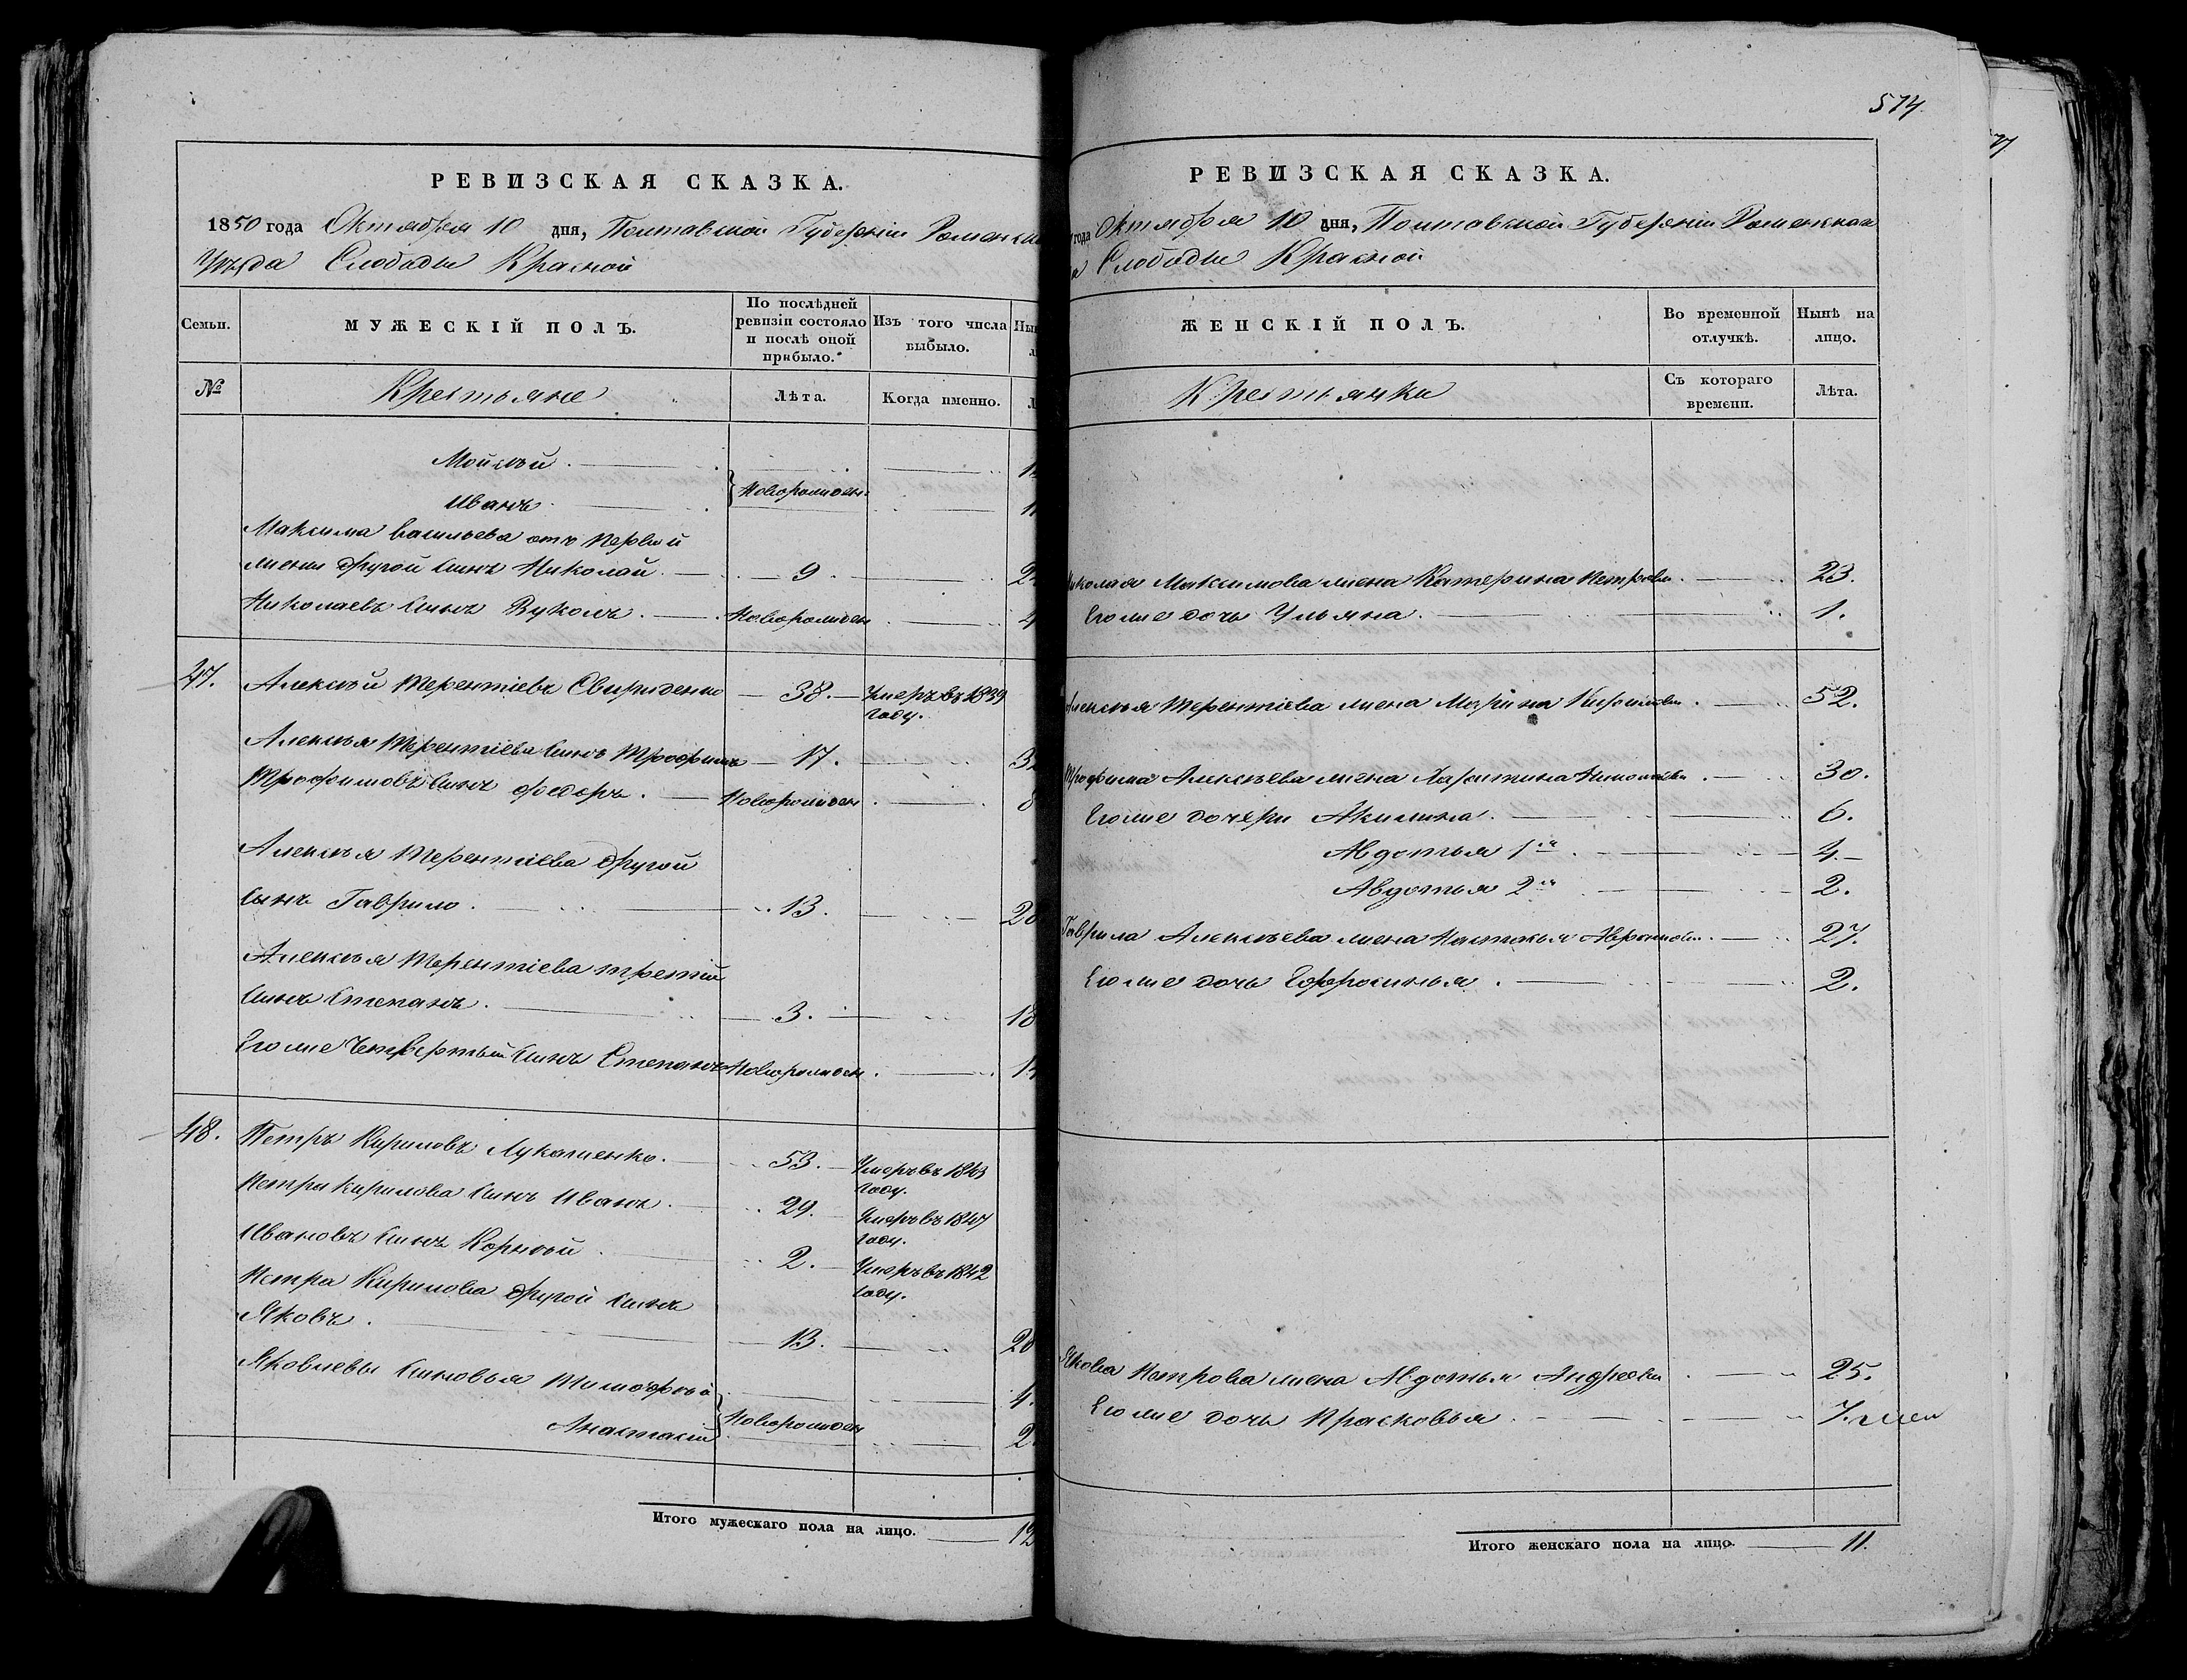 РЕВИЗСКАЯ СКАЗКА.
1850 года Октября 10 дня, Полтавской Губерніи Роменска
Уѣзда Слободы Красной
Семьи.
МУЖЕСКІЙ ПОЛЪ.
По послѣдней ревизіи состояло и послѣ оной прибыло.
Изъ того числа выбыло.
№
Крестьяне
Лѣта.
Когда именно.
Мойсѣй
Иванъ
Новорожден.
Максима Васильева отъ первой
жены другой сынъ Николай. 9.
Николаевъ сынъ Вуколъ. Новорожден 4
47. Алексѣй Терентіевъ Свириденко 38. Умеръ въ 1839 году.
Алексѣя Терентіева сынъ Трофимъ 17.
Трофимовъ сынъ Федоръ. Новорожден. 8
Алексѣя Терентіева другой
сынъ Гаврило. 13. 28
Алексѣя Терентіева третій
сынъ Степанъ. 3. 18
Его же Четвертый сынъ Степанъ Новорожден.
48. Петръ Кириловъ Лукашенко. 53. Умеръ въ 1843 году.
Петра Кирилова сынъ Иванъ. 29. Умеръ въ 1847 году.
Ивановъ сынъ Корнѣй 2. Умеръ въ 1842 году.
Петра Кирилова другой сынъ
Яковъ. 13. 28
Яковлевы сыновья Тимофѣй 4.
Анастасій 2.
Новорожден
Итого мужескаго пола на лицо. 12
514.
РЕВИЗСКАЯ СКАЗКА.
года Октября 10 дня, Полтавской Губерніи Роменскаго
а Слободы Красной
ЖЕНСКІЙ ПОЛЪ.
Во временной отлучкѣ.
Нынѣ на лицо.
Крестьянки
Съ котораго времени.
Лѣта.
Николая Максимова жена Катерина Петрова. 23.
Его же дочь Ульяна. 1.
Алексѣя Терентіева жена Марина Кирилова. 52.
Трофима Алексѣева жена Харитина 30.
Его же дочери Акилина. 6.
Авдотья 1я 4.
Авдотья 2я 2.
Гаврила Алексѣева жена Наталья 27.
Его же дочь Ефросинья. 2.
Якова Петрова жена Авдотья Андреева 25.
Его же дочь Прасковья. 7. мес
Итого женскаго пола на лицо. 11.